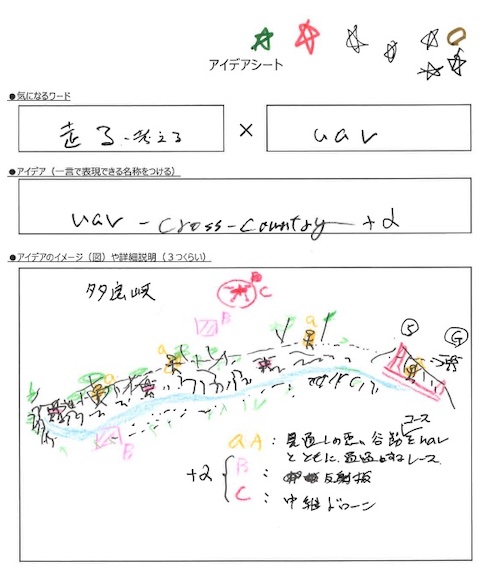 アイデアシート
●気になるワード
走る・考える × uav
●アイデア（一言で表現できる名称をつける）
uav - cross-country +α
●アイデアのイメージ（図）や詳細説明（３つくらい）
C
B
a
a
a
S
G
B
コース
a A : 見通しの悪い谷筋をuav
とともに 走る レース
+α
B : 反射板
C : 中継ドローン